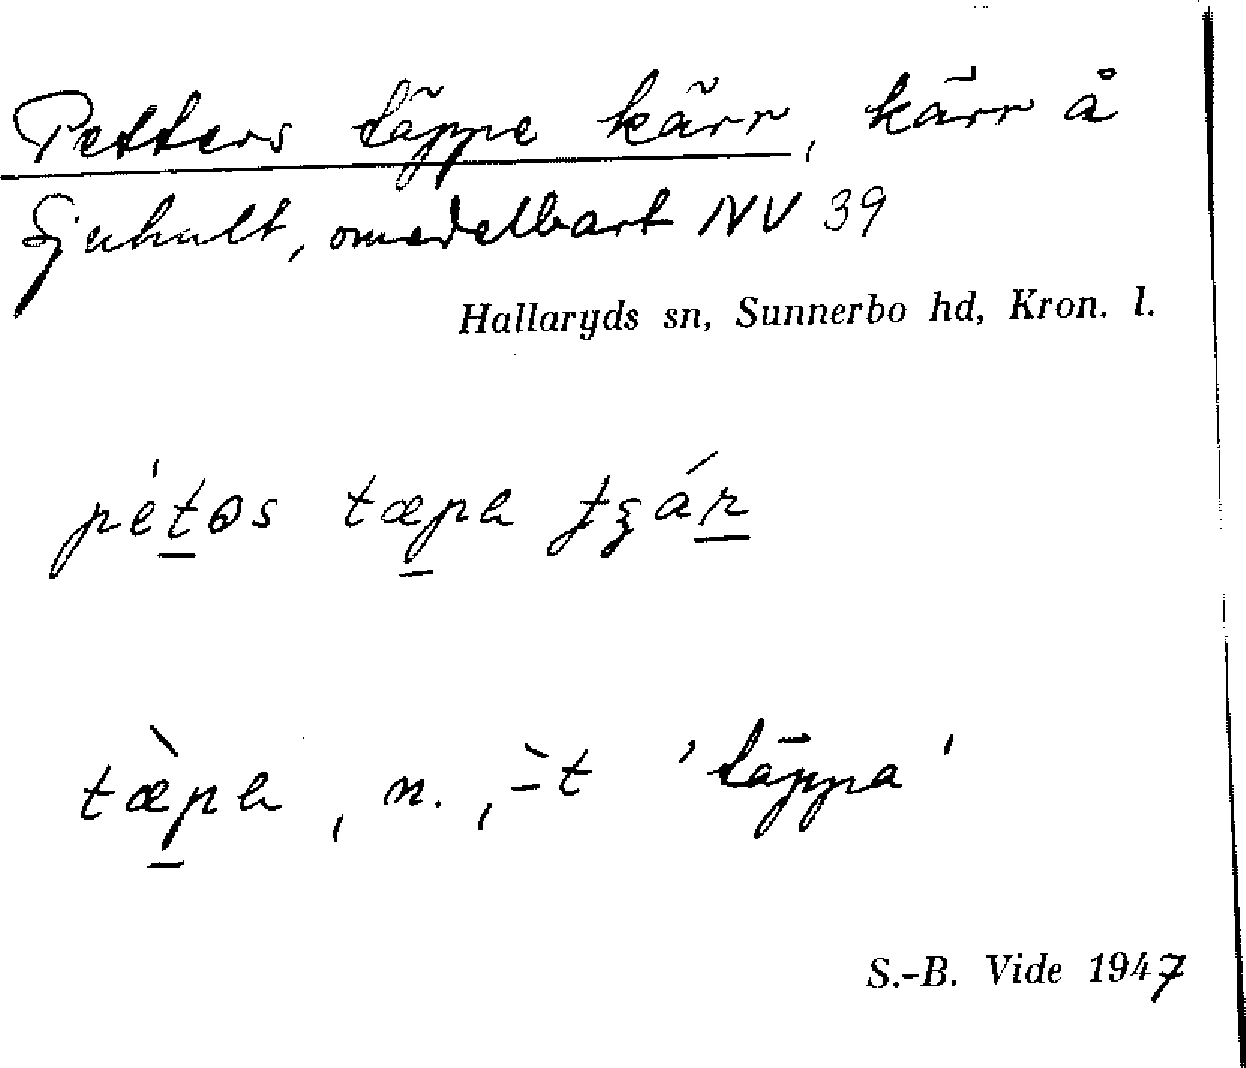 Petters täppe kärr, kärr å
Sjuhult, omedelbart NV 39
Hallaryds sn, Sunnerbo hd, Kron. l.
pét̲ɵs tæp̲a ʈʂár̲
tæ̀p̲a, n., -̀t 'täppa'
S.-B. Vide 1947